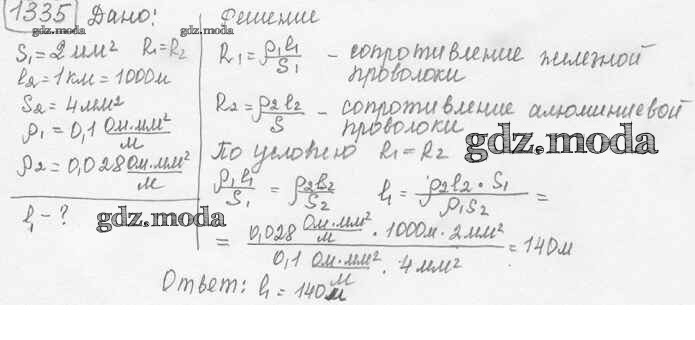 1335 Дано: Решение
gdz.moda gdz.moda
S₁ = 2 мм² R₁ = R₂
l₂ = 1 км = 1000 м
S₂ = 4 мм²
ρ₁ = 0,1 Ом·мм²/м
ρ₂ = 0,028 Ом·мм²/м
l₁ - ?
gdz.moda
R₁ = ρ₁l₁/S₁ - сопротивление железной
проволоки
R₂ = ρ₂l₂/S - сопротивление алюминиевой
проволоки
gdz.moda
По условию R₁ = R₂
ρ₁l₁/S₁ = ρ₂l₂/S₂ l₁ = ρ₂l₂·S₁/ρ₁S₂ =
= 0,028 Ом·мм²/м · 1000м · 2 мм² / 0,1 Ом·мм²/м · 4 мм² = 140 м
Ответ: l₁ = 140 м